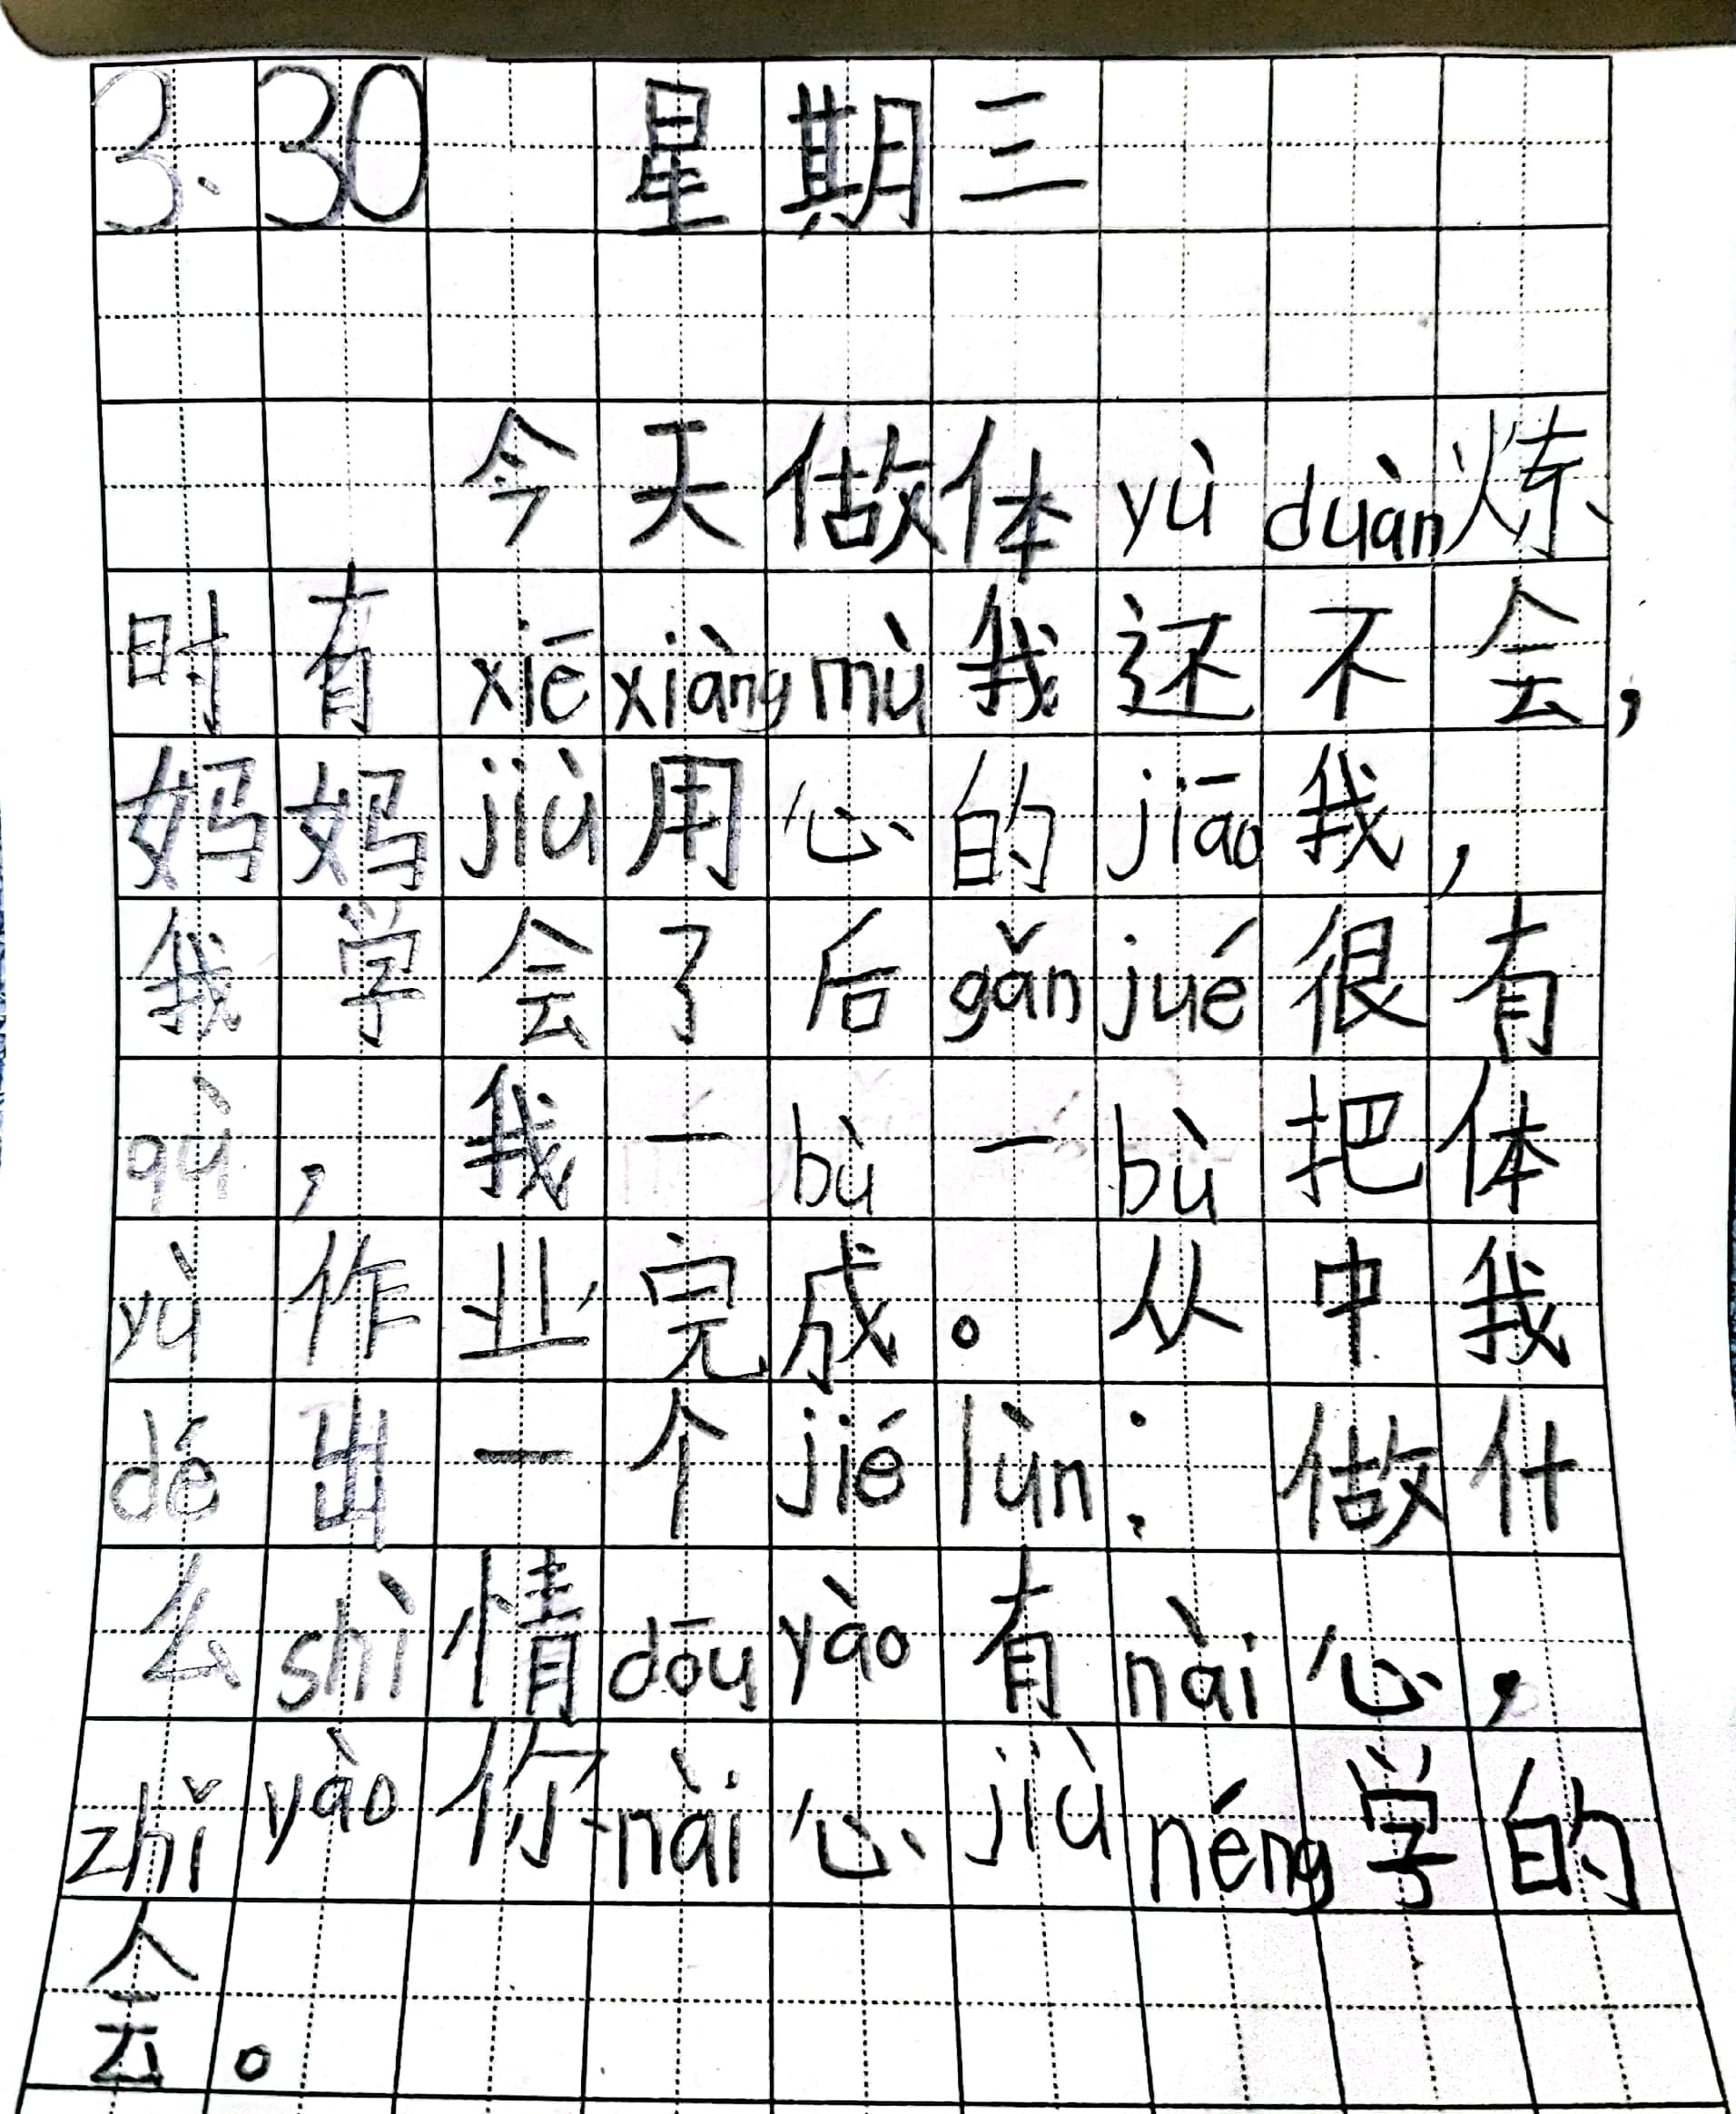 3.30 星期三
今天做体yù duàn炼
时有xiē xiàng mù我还不会,
妈妈jiù用心的jiāo我,
我学会了后gǎn jué很有
qù,我一bù一bù把体
yù作业完成。从中我
dé出一个jié lùn:做什
么shì情dōu yào有nài心,
zhǐ yào你nài心jiù néng学的
会。